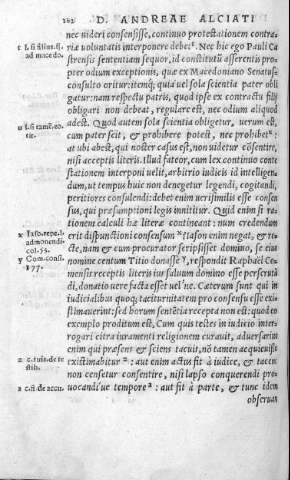 102 D. ANDREAE ALCIATI
nec uideri consensisse, continuo protestationem contra-
ria uoluntatis interponere debet. Nec hic ego Pauli Ca
strensis sententiam sequor, id constitutũ asserentis pro-
pter odium exceptionis, quæ ex Macedoniano Senatus-
consulto oritur: itemq́; quia uel sola scientia pater obli
gatur: nam respectu patris, quod ipse ex contractu filij
obligari non debeat, regulare est, nec odium aliquod
adest. Quod autem sola scientia obligetur, uerum est,
cum pater scit, & prohibere potest, nec prohibet:
at ubi abest, qui noster casus est, non uidetur cõsentire,
nisi acceptis literis. Illud fateor, cum lex continuo conte
stationem interponi uelit, arbitrio iudicis id intelligen-
dum, ut tempus huic non denegetur legendi, cogitandi,
peritiores consulendi: debet enim uerisimilis esse consen
sus, qui præsumptioni legis innititur. Quid enim si ra-
tionem calculi hæ literæ contineant: num credendum
erit dispunctioni consensum, si statim enim negat, & re-
cte, nam & cum procurator scripsisset domino, se eius
nomine centum Titio donasse, respondit Raphael Cu-
mensis receptis literis iussuum domino esse persecutũ
di, donatio uere facta esset uel ne. Cæterum sunt qui in
iudicialibus quoq; taciturnitatem pro consensu esse exi-
stimauerint: sed horum sentẽtia recepta non est: quod eo
exemplo proditum est, Cum quis testes in iudicio inter-
rogari citra iuramenti religionem curauit, aduersarius
enim qui præsens & sciens tacuit, nõ tamen acquieuisse
existimabitur: aut enim actus fit à iudice, & tacens
non censetur consentire, nisi lapso conquerendi pro
uocandiue tempore: aut fit à parte, & tunc idem
obseruan